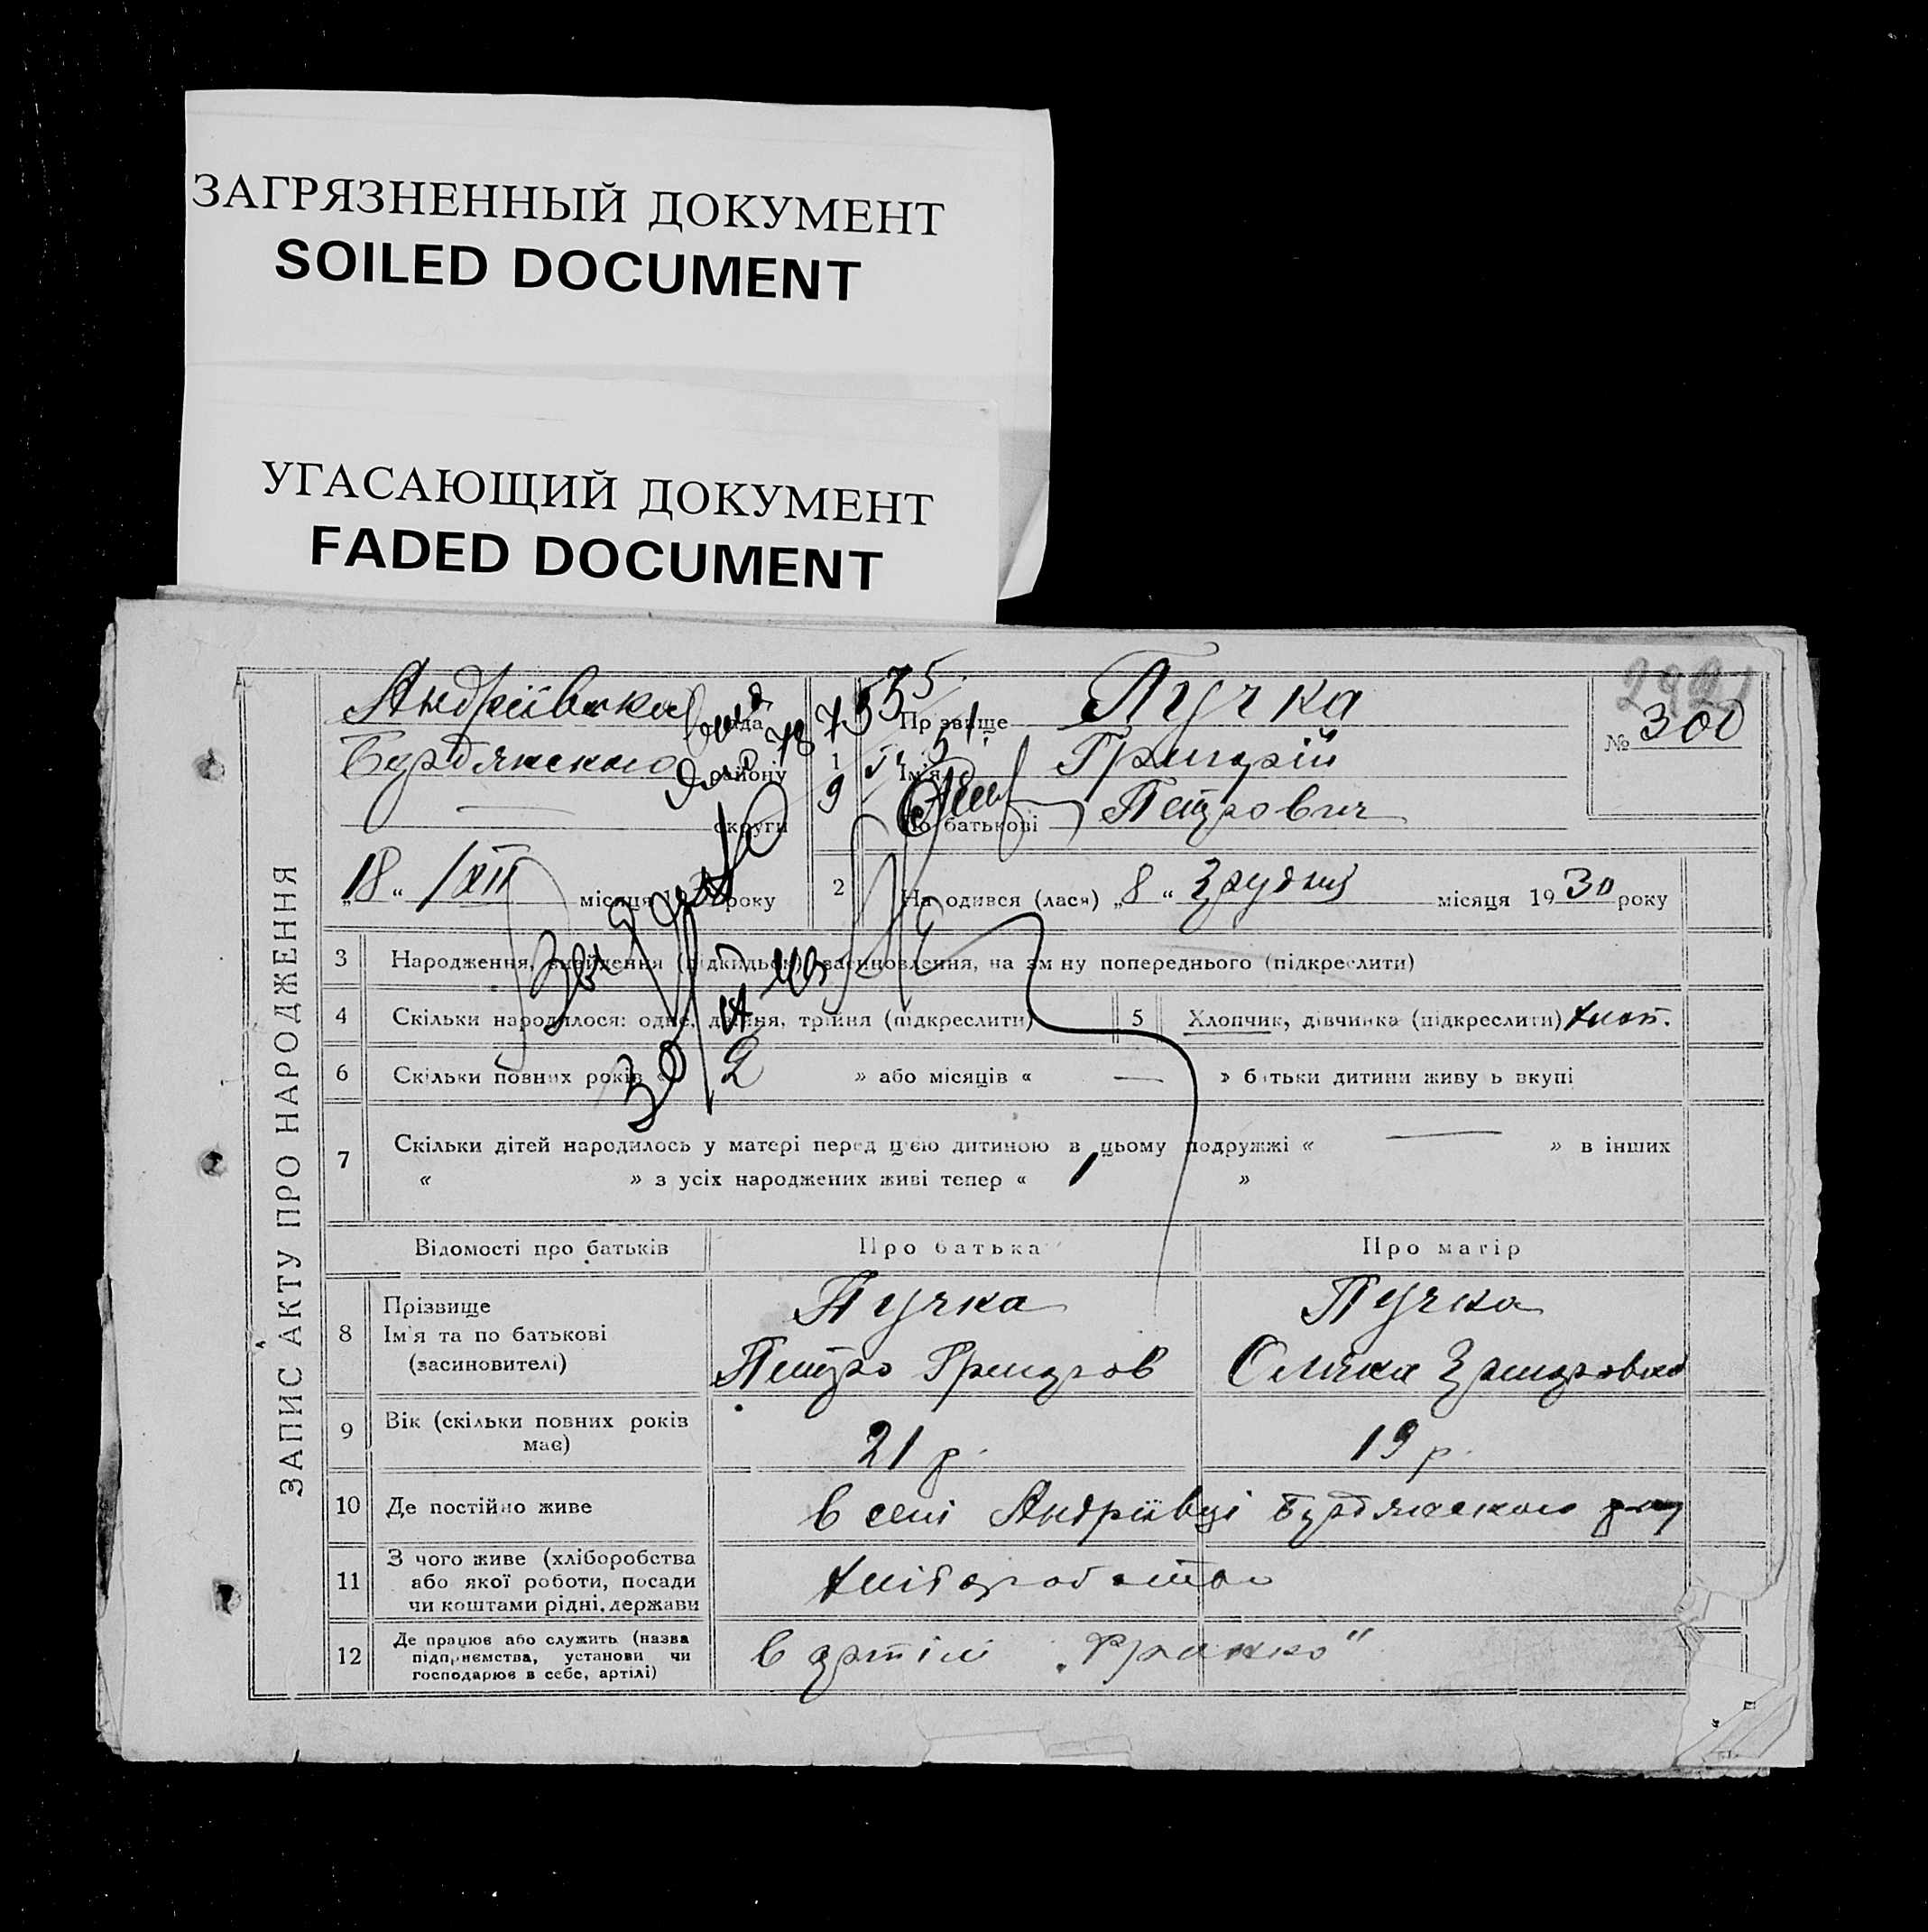 ЗАГРЯЗНЕННЫЙ ДОКУМЕНТ
SOILED DOCUMENT
УГАСАЮЩИЙ ДОКУМЕНТ
FADED DOCUMENT
ЗАПИС АКТУ ПРО НАРОДЖЕННЯ
Андріївська рада
Бердянського району
округи
„18“ /XII місяця 19 року
1 Прізвище Пучка
Ім'я Григорій
По батькові Петрович
№ 300
2 Народився (лася) „8“ грудня місяця 1930 року
3 Народження, знайдення (підкидьок), засиновлення, на зміну попереднього (підкреслити)
4 Скільки народилося: одне, двійня, трійня (підкреслити)
5 Хлопчик, дівчинка (підкреслити) хлоп.
6 Скільки повних років « 2 » або місяців « — » батьки дитини живуть вкупі
7 Скільки дітей народилось у матері перед цією дитиною в цьому подружжі « — » в інших
« » з усіх народжених живі тепер « 1 »
Відомості про батьків Про батька Про матір
8 Прізвище Пучка Пучка
Ім'я та по батькові
(засиновителі) Петро Григоров Олена Григоровна
9 Вік (скільки повних років
має) 21 р. 19 р.
10 Де постійно живе в селі Андріївці Бердянського р-ну
11 З чого живе (хліборобства
або якої роботи, посади
чи коштами рідні, держави хліборобство
12 Де працює або служить (назва
підприємства, установи чи
господарює в себе, артілі) в артілі „Франко"